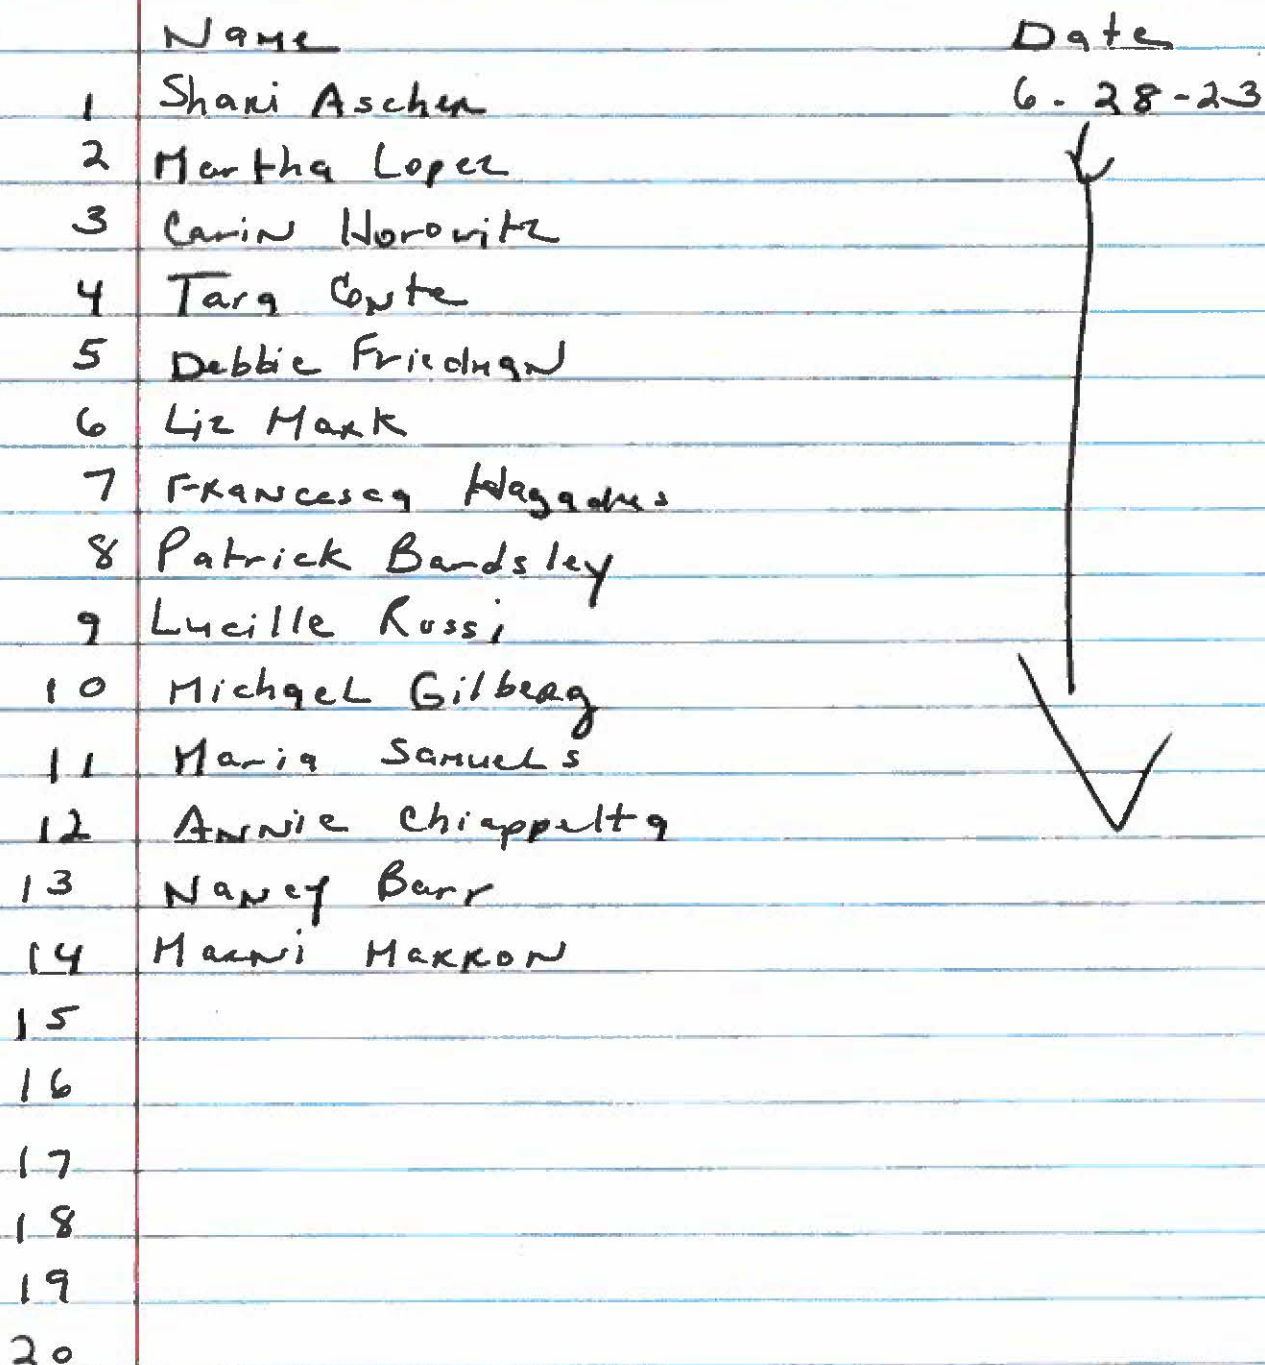 Name Date
1 Shari Ascher 6-28-23
2 Martha Lopez
3 Carin Horowitz
4 Tara Conte
5 Debbie Friedman
6 Liz Mark
7 Francesca Hagadus
8 Patrick Bardsley
9 Lucille Rossi
10 Michael Gilberg
11 Maria Samuels
12 Annie Chiappetta
13 Nancy Barr
14 Marni Markon
15
16
17
18
19
20